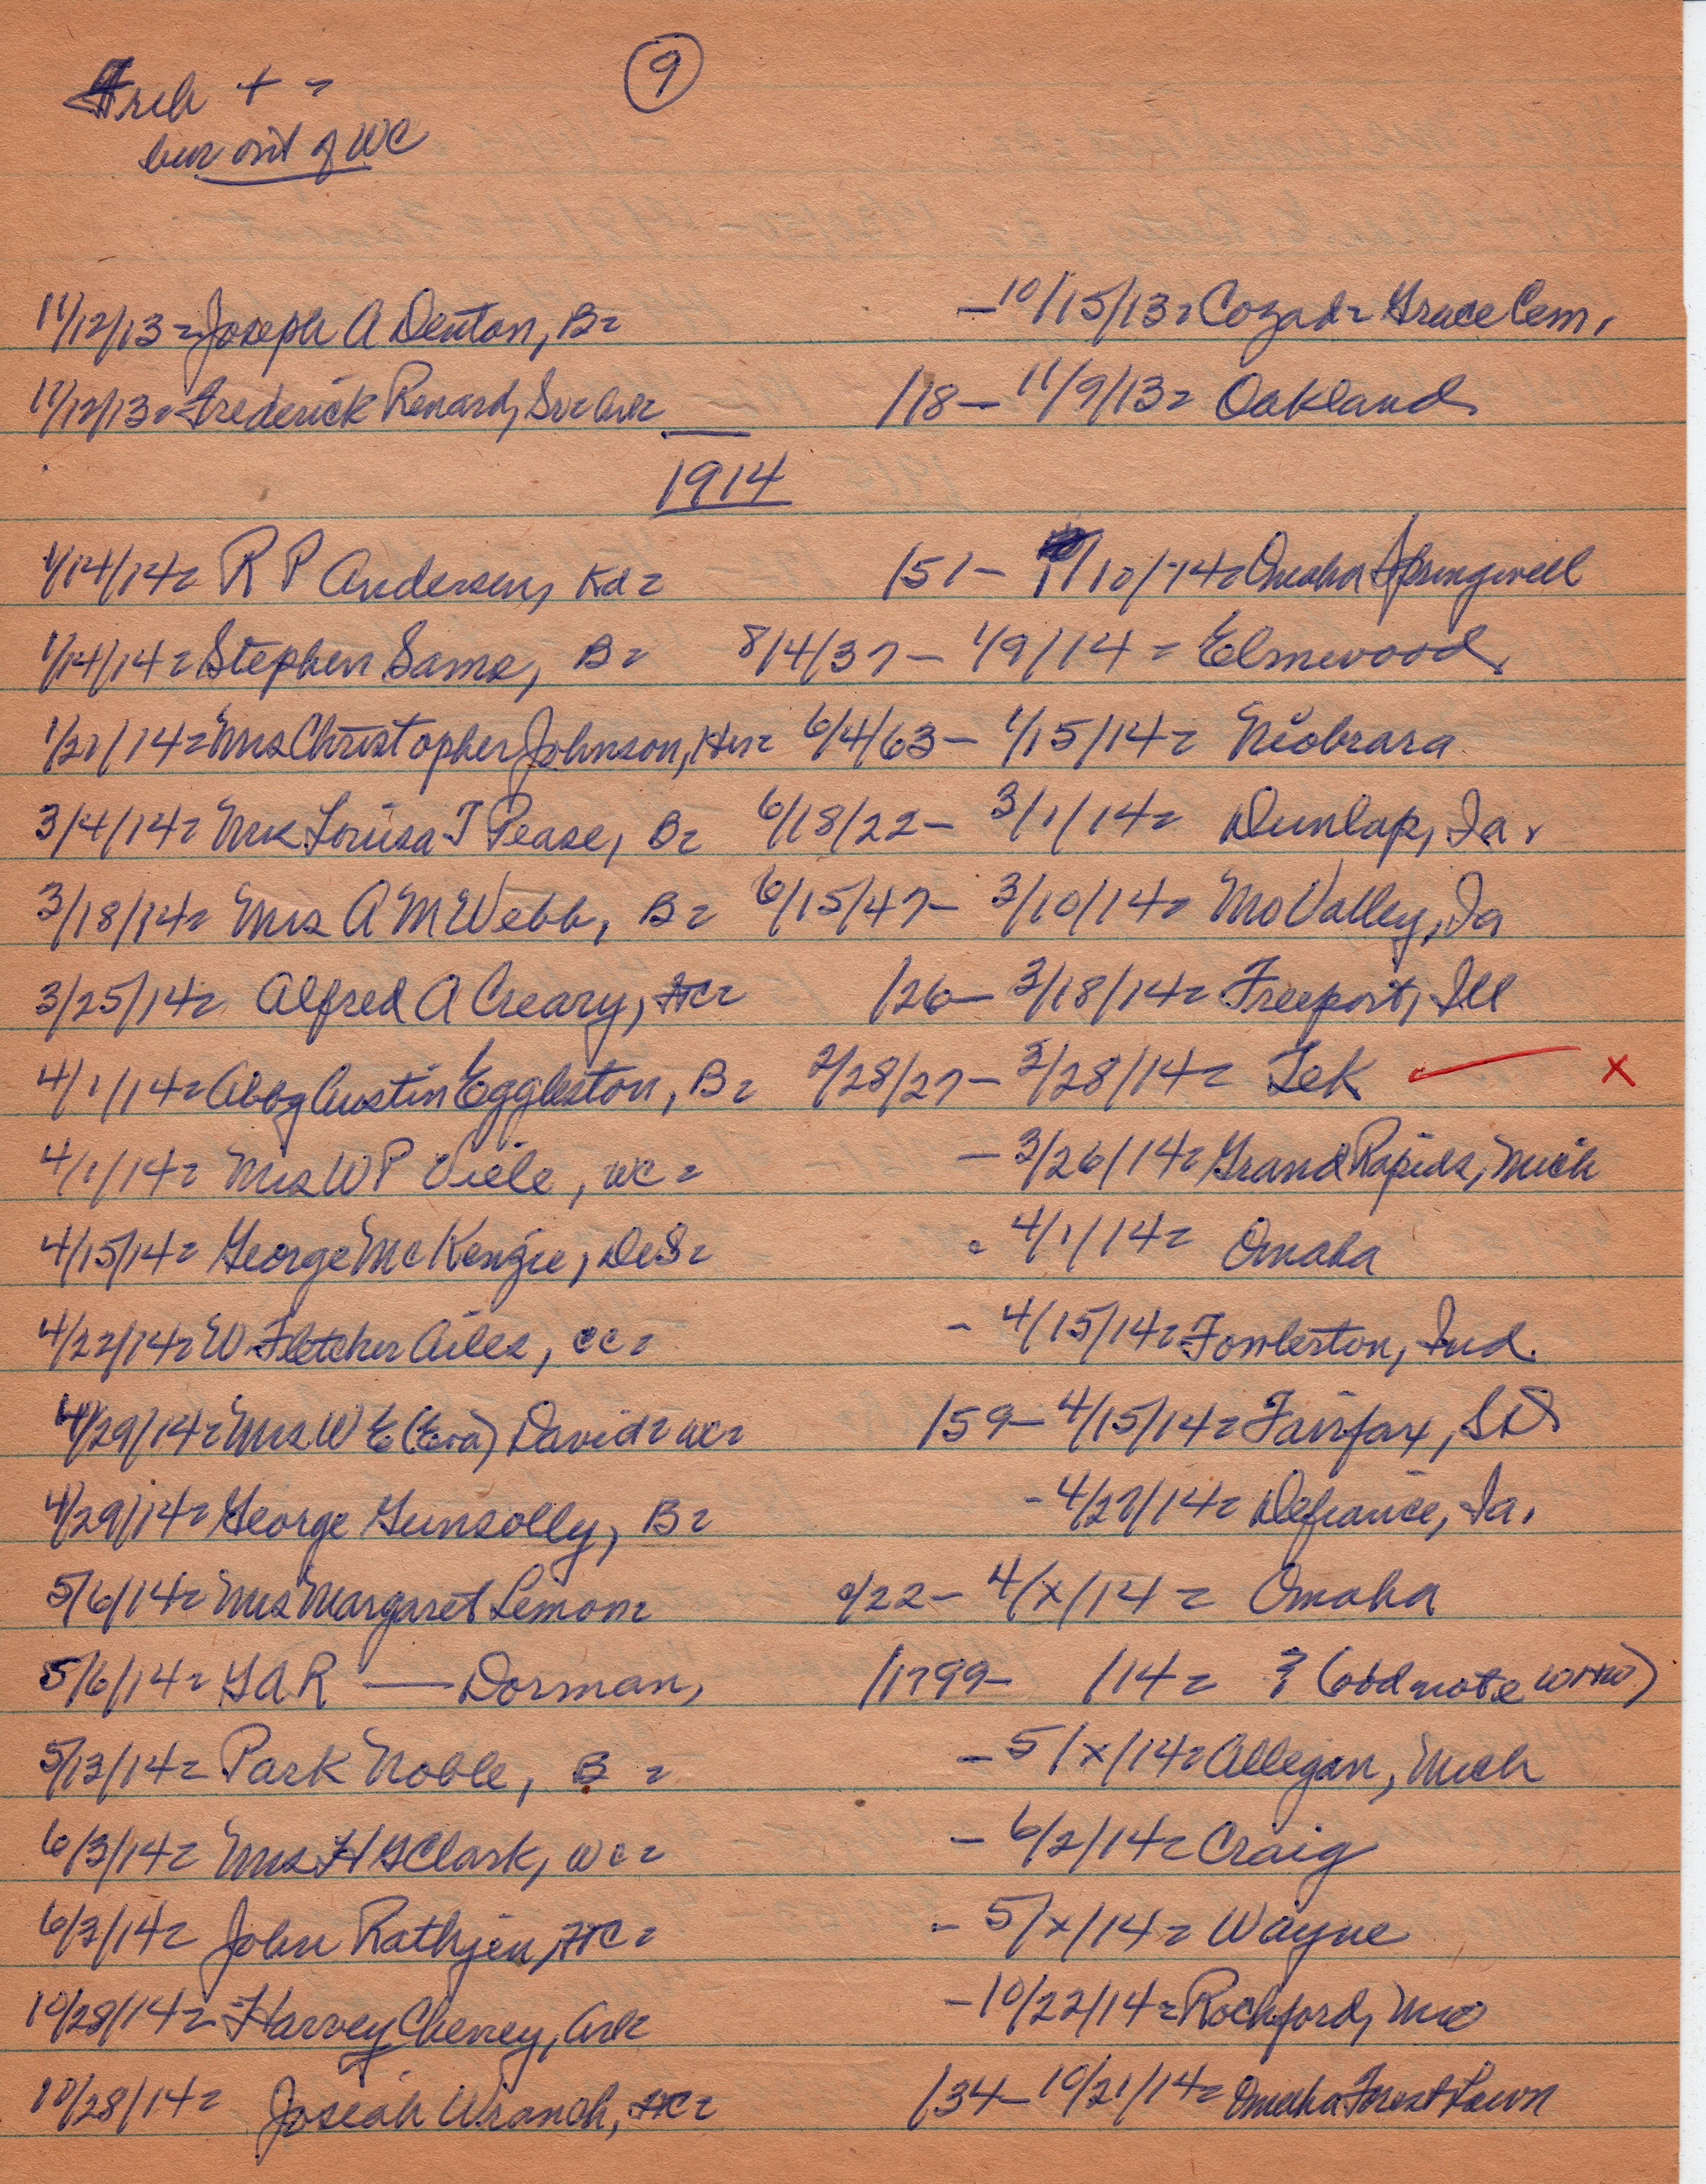 9
Arch + =
bur out of WC
11/12/13 = Joseph A Denton, B= — 10/15/13 = Cozad = Grace Cem.
11/12/13 = Frederick Renard, Sr = Ark /18 — 11/9/13 = Oakland
1914
1/14/14 = R P Andersen, Kd = /51 — 1/10/14 = Omaha Springwell
1/14/14 = Stephen Sams, B = 8/4/37 — 1/9/14 = Elmwood
1/21/14 = Mrs Christopher Johnson, Her = 6/4/63 — 1/15/14 = Niobrara
3/4/14 = Mrs Louisa T Pease, B = 6/18/22 — 3/1/14 = Dunlap, Ia.
3/18/14 = Mrs A M Webb, B = 6/15/47 — 3/10/14 = Mo Valley, Ia
3/25/14 = Alfred A Creary, HC = /26 — 3/18/14 = Freeport, Ill
4/1/14 = Abby Austin Eggleston, B = 2/28/27 — 3/28/14 = Tek x
4/1/14 = Mrs W P Viele, WC = — 3/26/14 = Grand Rapids, Mich
4/15/14 = George McKenzie, DeS = - 4/1/14 = Omaha
4/22/14 = W Fletcher Ailes, CC = - 4/15/14 = Fowlerton, Ind.
4/29/14 = Mrs W E (Eva) David = WC = /59 — 4/15/14 = Fairfax, SD
4/29/14 = George Gunsolly, B = - 4/27/14 = Defiance, Ia.
5/6/14 = Mrs Margaret Lemon = /22 — 4/x/14 = Omaha
5/6/14 = GAR — Dorman, /1799 — /14 = ? (odd note)
5/13/14 = Park Noble, B = — 5/x/14 = Allegan, Mich
6/3/14 = Mrs H G Clark, WC = — 6/2/14 = Craig
6/3/14 = John Rathjen, HC = - 5/x/14 = Wayne
10/28/14 = Harvey Cheney, Ark — 10/22/14 = Rochford, Mo
10/28/14 = Josiah Wranch, HC = /34 — 10/21/14 = Omaha Forest Lawn